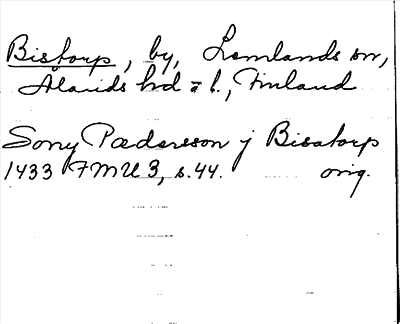 Bistorp, by, Lemlands sn,
Ålands hd o l., Finland
Sony Pædersson j Bisatorp
1433 FMU 3, s. 44. orig.